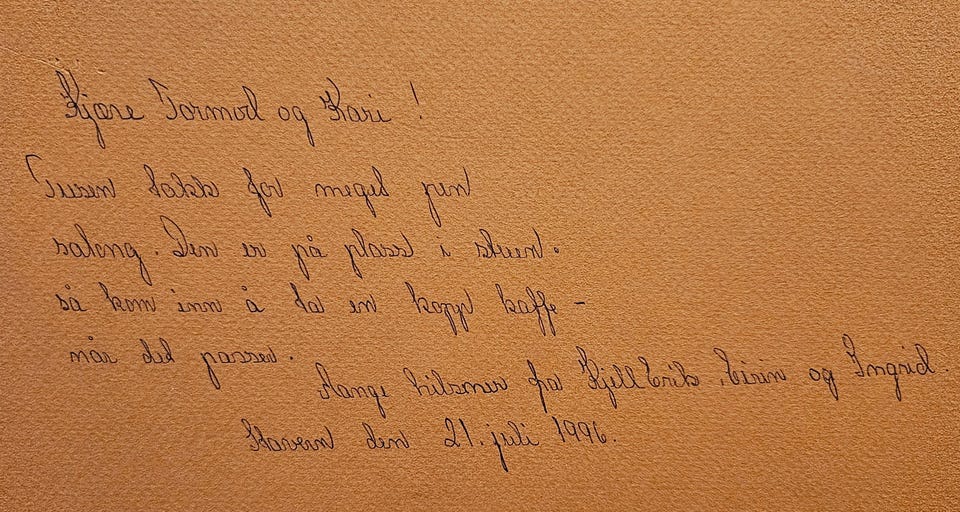 Kjære Tormod og Kari !
Tusen takk for meget pen
salong. Den er på plass i stuen.
så kom inn å ta en kopp kaffe -
når det passer.
Mange hilsner fra Kjell Erik, Eirin og Ingrid.
Stavern den 21. juli 1996.